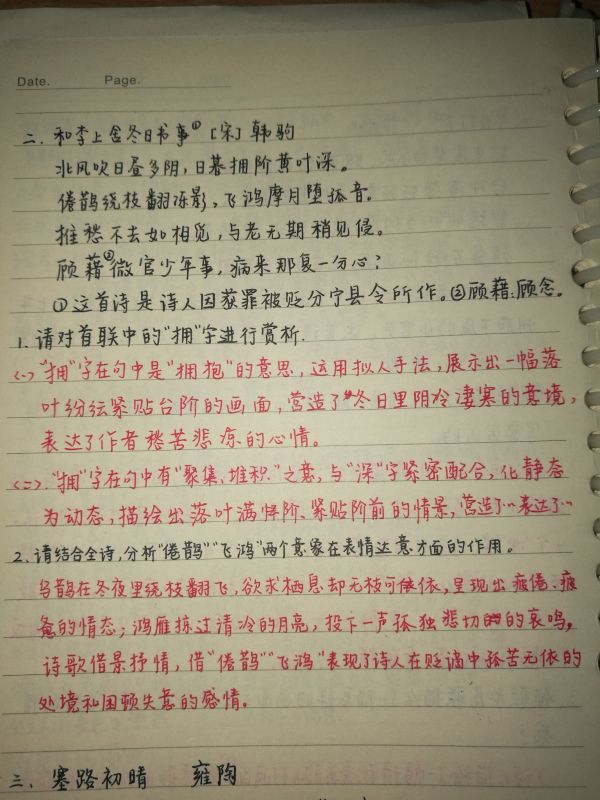 Date. Page.
二. 和李上舍冬日书事① [宋] 韩驹
北风吹日昼多阴,日暮拥阶黄叶深。
倦鹊绕枝翻冻影,飞鸿摩月堕孤音。
推愁不去如相觅,与老无期稍见侵。
顾藉②微官少年事,病来那复一分心?
①这首诗是诗人因获罪被贬分宁县令所作。②顾藉:顾念。
1. 请对首联中的"拥"字进行赏析.
<一>"拥"字在句中是"拥抱"的意思,运用拟人手法,展示出一幅落
叶纷纭紧贴台阶的画面,营造了冬日里阴冷凄寒的意境,
表达了作者愁苦悲凉的心情。
<二>."拥"字在句中有"聚集、堆积"之意,与"深"字紧密配合,化静态
为动态,描绘出落叶满阶、紧贴阶前的情景,营造了…表达了…
2. 请结合全诗,分析"倦鹊""飞鸿"两个意象在表情达意方面的作用。
乌鹊在冬夜里绕枝翻飞,欲求栖息却无枝可依,呈现出疲倦、疲
惫的情态;鸿雁掠过清冷的月亮,投下一声孤独悲切的哀鸣,
诗歌借景抒情,借"倦鹊""飞鸿"表现了诗人在贬谪中孤苦无依的
处境和困顿失意的感情。
三、塞路初晴 雍陶